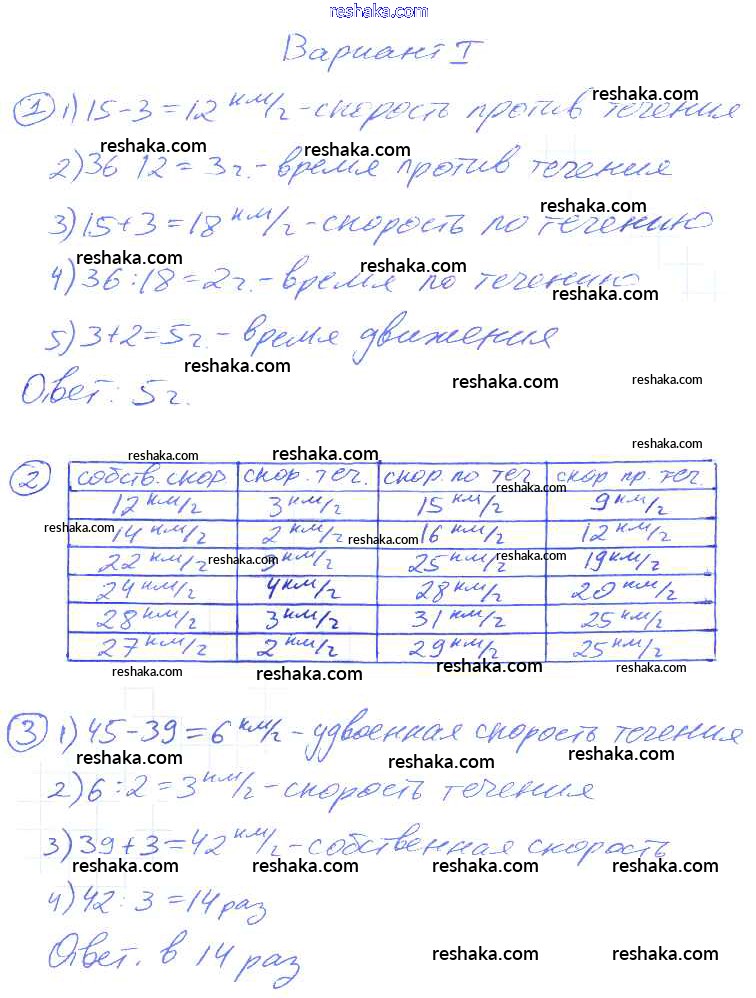 reshaka.com
Вариант I
reshaka.com
1 1) 15-3=12 км/г - скорость против течения
reshaka.com reshaka.com
2) 36 12 = 3 г. - время против течения
reshaka.com
3) 15+3=18 км/г - скорость по течению
reshaka.com reshaka.com
4) 36:18=2 г. - время по течению
reshaka.com
5) 3+2=5 г. - время движения
reshaka.com reshaka.com reshaka.com
Ответ: 5 г.
reshaka.com reshaka.com reshaka.com
2 собств. скор. скор. теч. скор. по теч скор пр. теч.
reshaka.com
12 км/г 3 км/г 15 км/г 9 км/г
reshaka.com reshaka.com
14 км/г 2 км/г 16 км/г 12 км/г
reshaka.com reshaka.com
22 км/г 3 км/г 25 км/г 19 км/г
24 км/г 4 км/г 28 км/г 20 км/г
28 км/г 3 км/г 31 км/г 25 км/г
27 км/г 2 км/г 29 км/г 25 км/г
reshaka.com reshaka.com reshaka.com reshaka.com
3 1) 45-39=6 км/г - удвоенная скорость течения
reshaka.com reshaka.com reshaka.com
2) 6:2=3 км/г - скорость течения
3) 39+3=42 км/г - собственная скорость
reshaka.com reshaka.com reshaka.com reshaka.com
4) 42:3=14 раз
Ответ. в 14 раз
reshaka.com reshaka.com